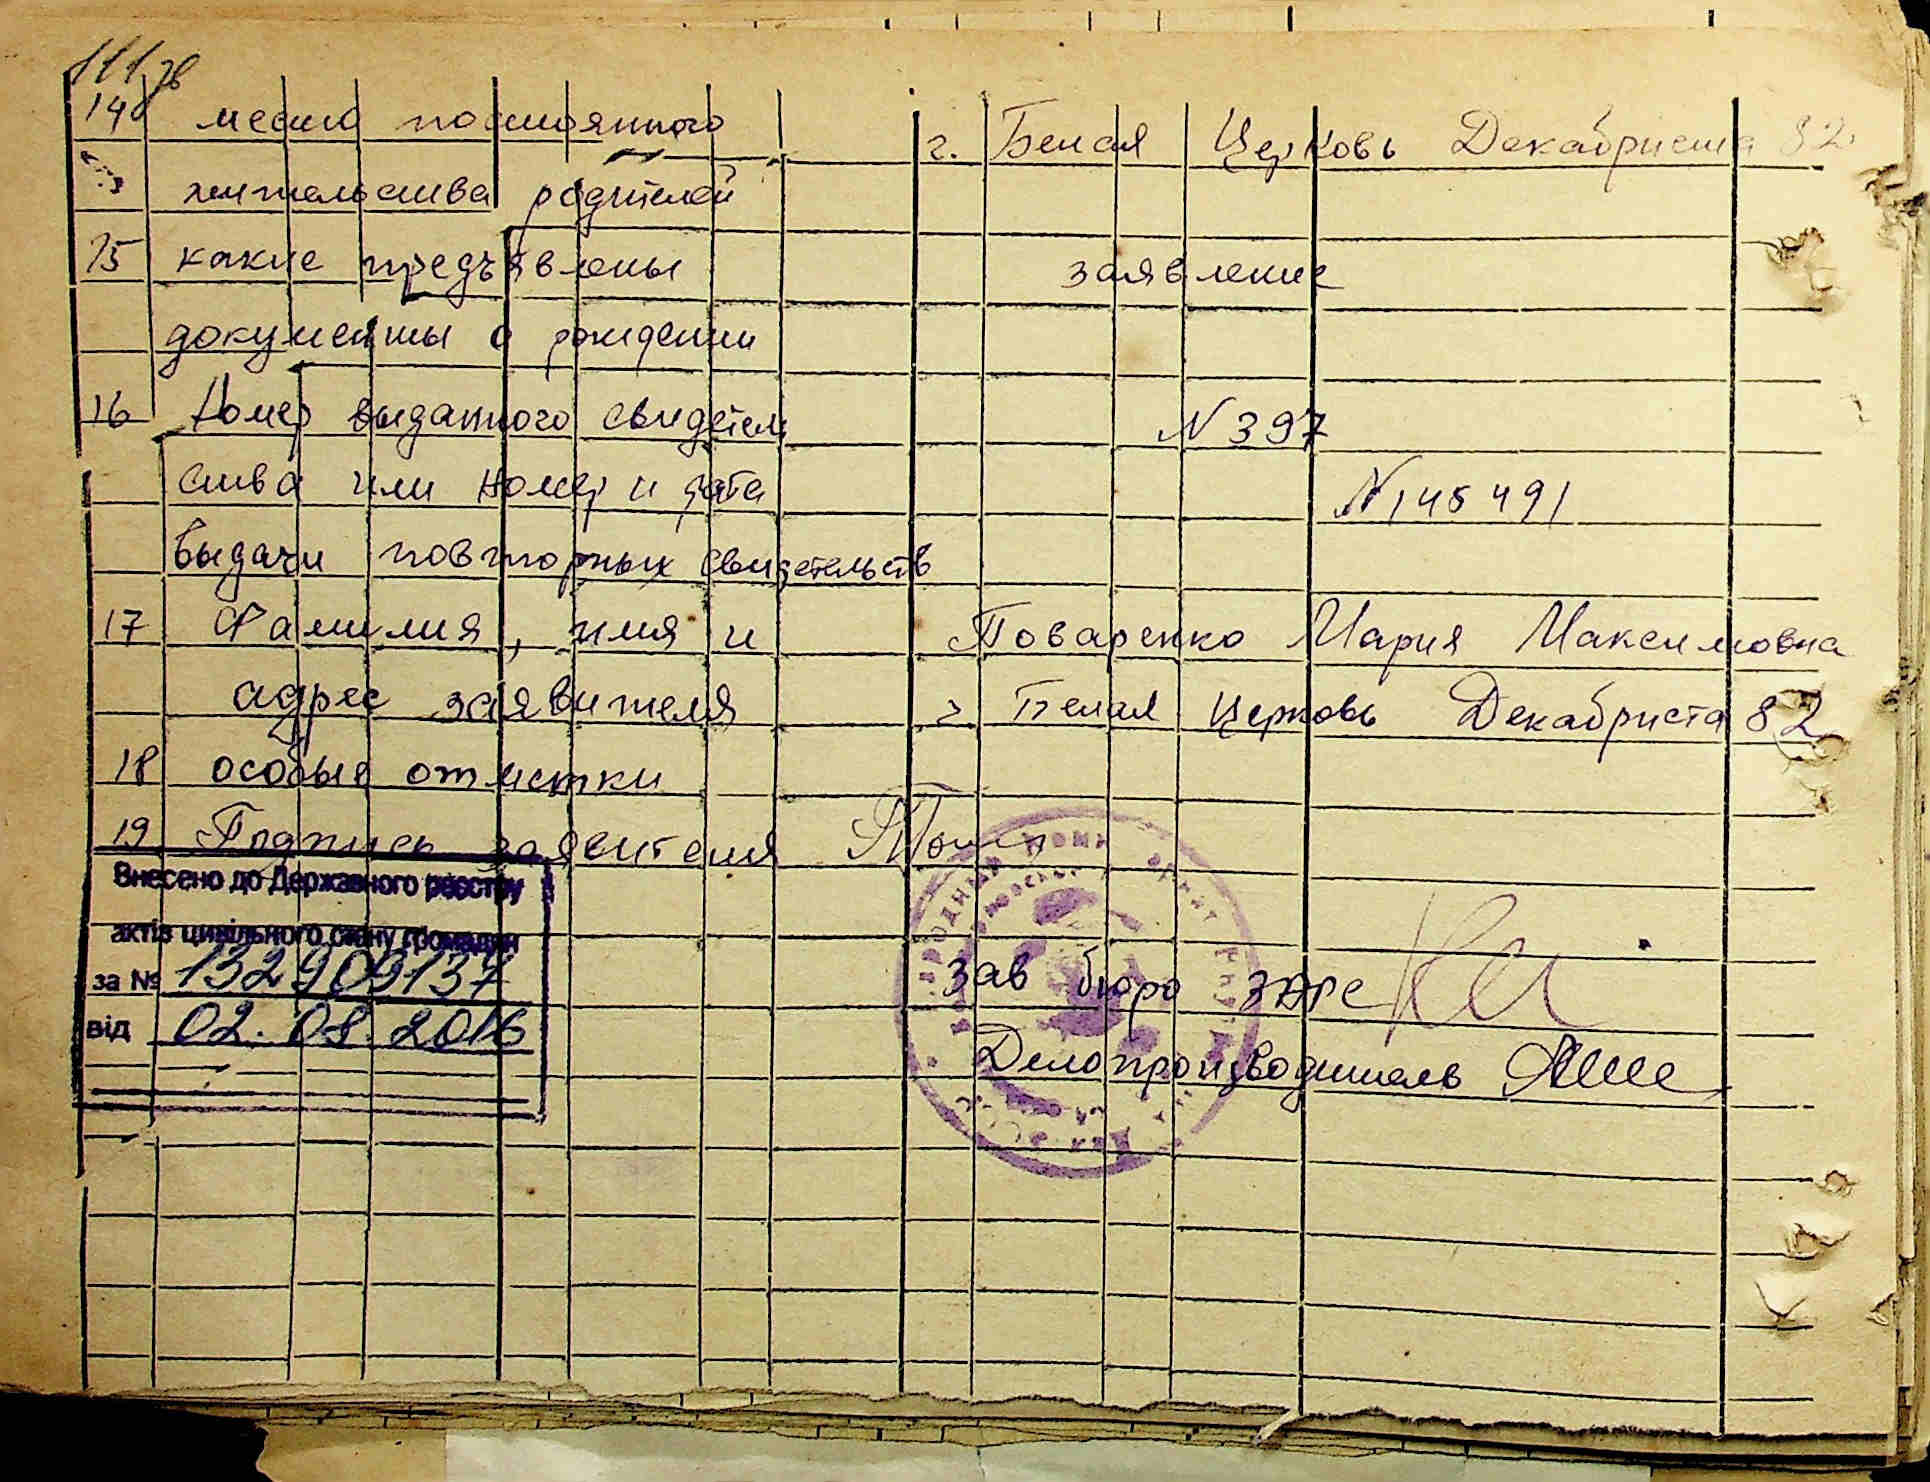 111 зв
14 место постоянного г. Белая Церковь Декабриста 82
жительства родителей
15 какие предъявлены заявление
документы о рождении
16 Номер выданного свидетель N 397
ства или номер и дата N 145491
выдачи повторных свидетельств
17 Фамилия, имя и Товаренко Мария Максимовна
адрес заявителя г Белая Церковь Декабриста 82
18 особые отметки
19 Подпись заявителя
Внесено до Державного реєстру
актів цивільного стану громадян
за № 132909137
від 02.08.2016
Зав бюро ЗАГС
Делопроизводитель